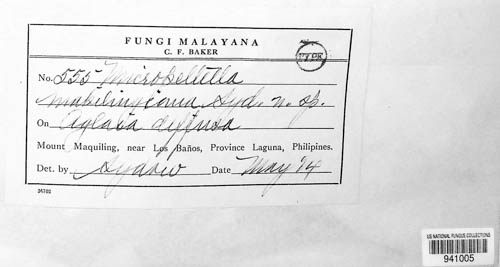 FUNGI MALAYANA
C. F. BAKER
TYPE
No. 555 Micropeltella
makilingiana Syd. n. sp.
On Aglaia diffusa
Mount Maquiling, near Los Baños, Province Laguna, Philipines.
Det. by Sydow Date May '14
26702
US NATIONAL FUNGUS COLLECTIONS
941005